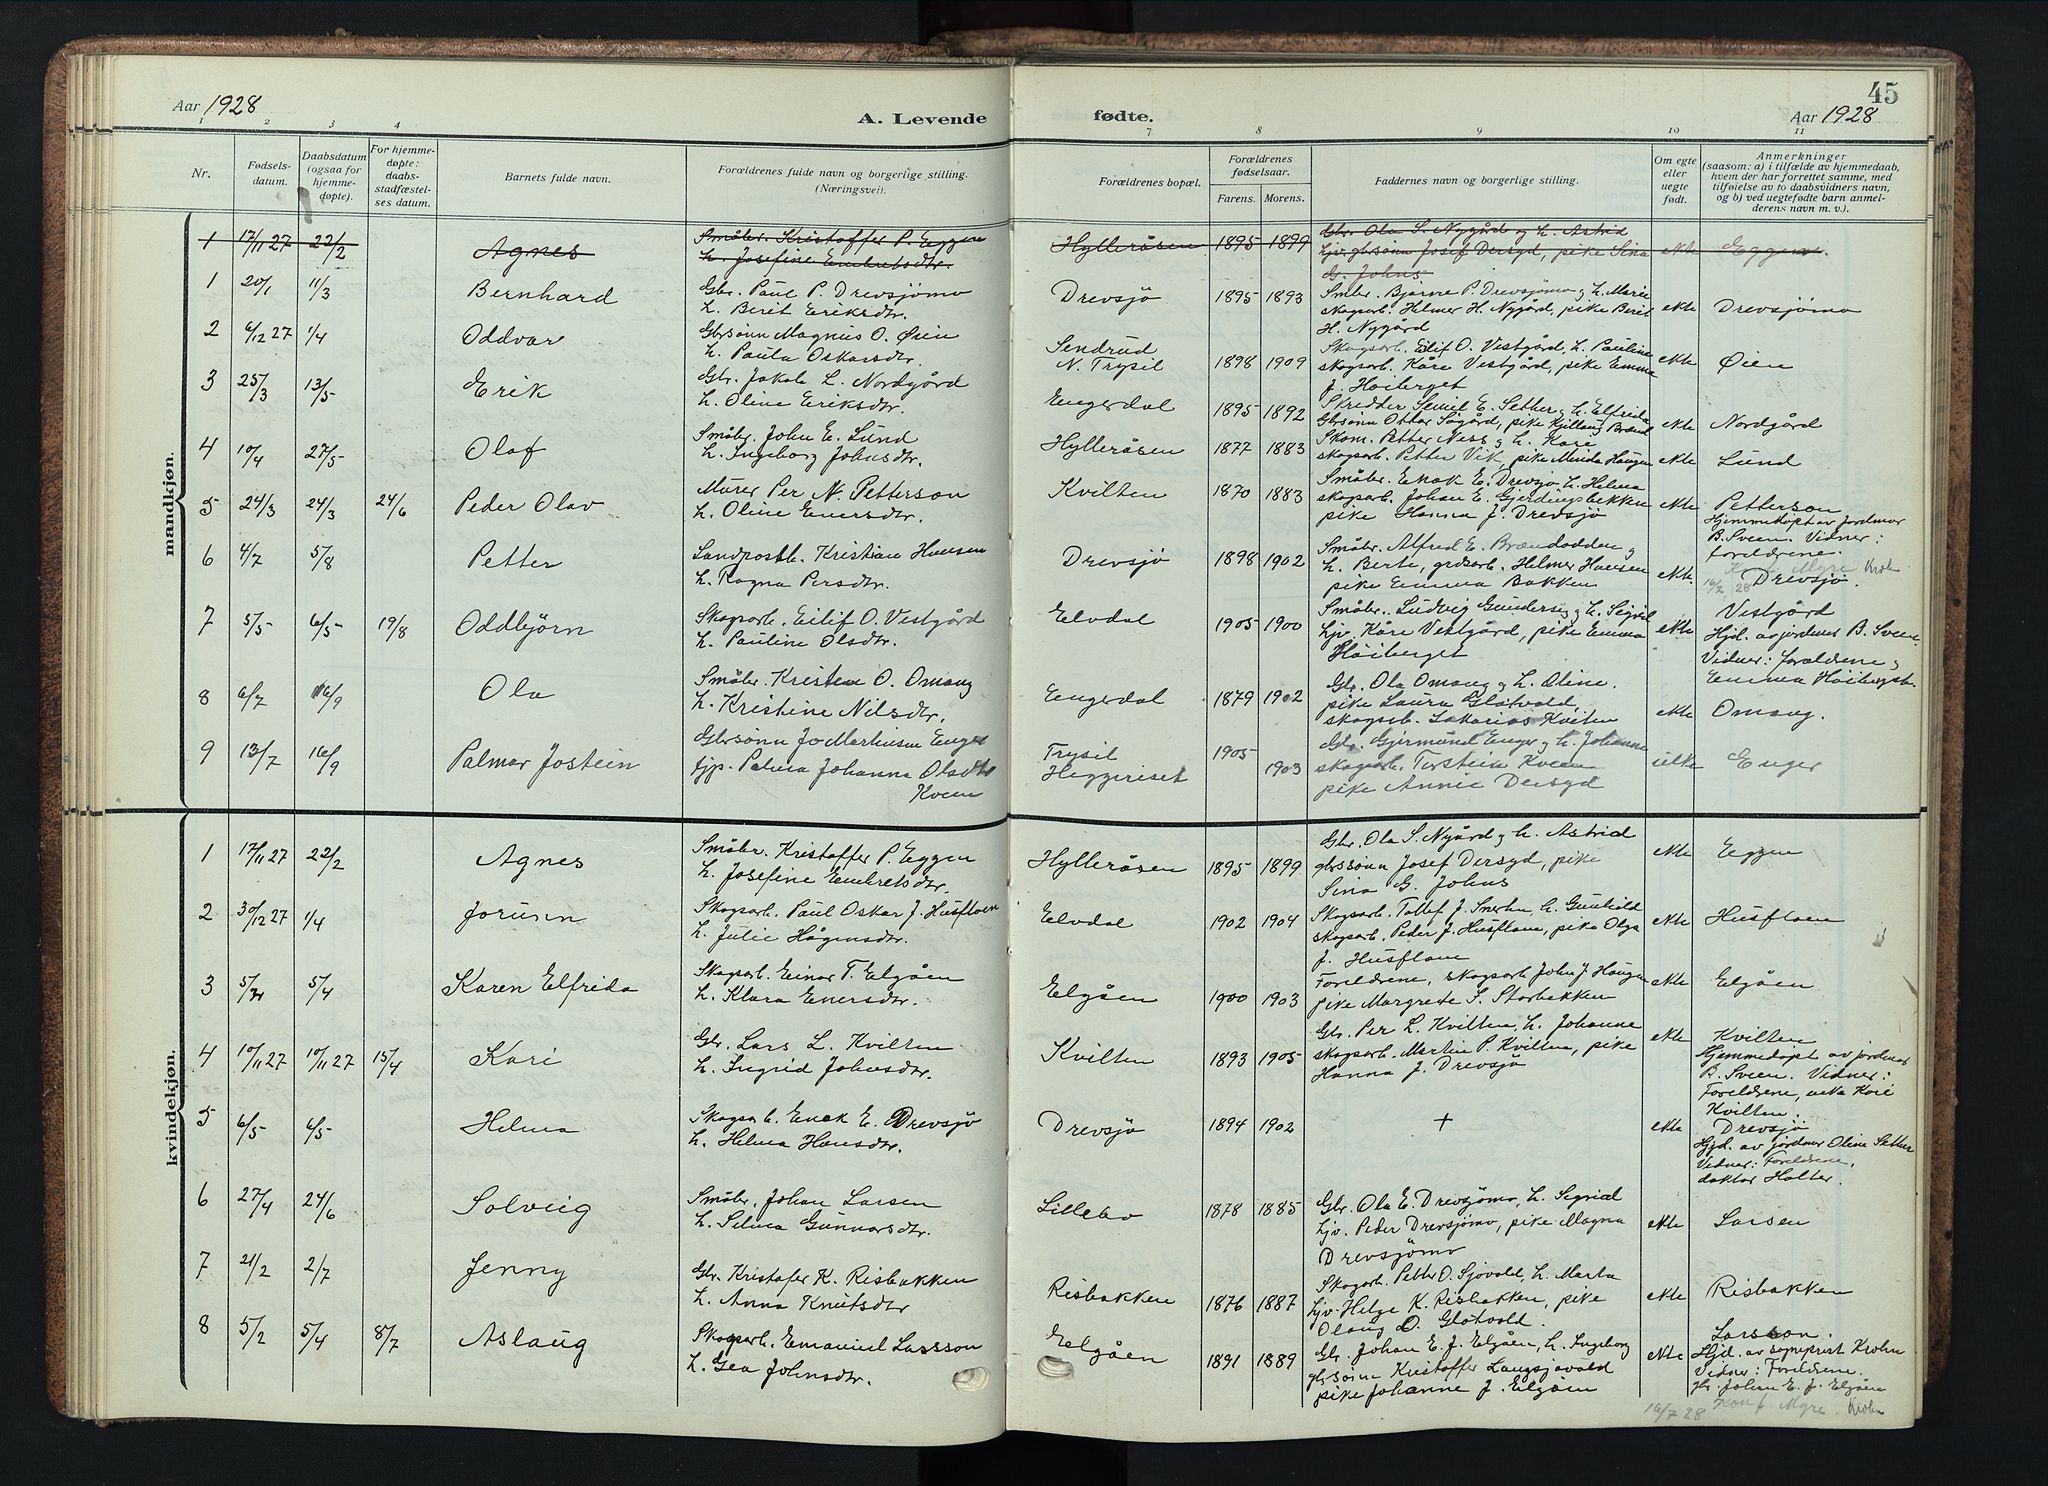 45
Aar 1928
A. Levende fødte.
Aar 1928
1 2 3 4 7 8 9 10 11
Nr.
Fødsels-
datum.
Daabsdatum
(ogsaa for
hjemme-
døpte).
For hjemme-
døpte:
daabs-
stadfæstel-
ses datum.
Barnets fulde navn.
Forældrenes fulde navn og borgerlige stilling.
(Næringsvei).
Forældrenes bopæl.
Forældrenes
fødselsaar.
Farens. Morens.
Faddernes navn og borgerlige stilling.
Om egte
eller
uegte
født.
Anmerkninger
(saasom: a) i tilfælde av hjemmedaab,
hvem der har forrettet samme, med
tilføielse av to daabsvidners navn,
og b) ved uegtefødte barn anmel-
derens navn m. v.).
mandkjøn.
1 17/11 27 22/2 Agnes
Småbr. Kristoffer P. Eggen
h. Josefine Embretsdtr.
Hylleråsen 1895 1899
Gbr. Ola S. Nygård og h. Astrid
ljv. gbrsønn Josef Dersyd, pike Sina
G. Johns
ekte Eggen.
1 20/1 11/3 Bernhard
Gbr. Paul P. Drevsjömo
h. Beret Eriksdtr.
Drevsjö 1895 1893
Småbr. Bjarne P. Drevsjömo og h. Marie
skogsarb. Helmer H. Nygård, pike Beret
H. Nygård
ekte Drevsjömo
2 6/12 27 1/4 Oddvar
Gbrsönn Magnus O. Øien
h. Paula Oskarsdtr.
Sendrud
N. Trysil 1898 1909
Skogsarb. Eilif O. Vestgård, h. Pauline
skogsarb. Kåre Vestgård, pike Emma
J. Høiberget
ekte Øien
3 25/3 13/5 Erik
Gbr. Jakob L. Nordgård
h. Oline Eriksdtr.
Engerdal 1895 1892
Skredder Semil E. Sether og h. Elfrida
Gbrsönn Ottar Sögård, pike Kjellaug Brænd
ekte Nordgård
4 10/4 27/5 Olaf
Småbr. John E. Lund
h. Ingeborg Johnsdtr.
Hylleråsen 1877 1883
Skom. Petter Ness og h. Kare
skogsarb. Petter Vik, pike Minda Haugen
ekte Lund
5 24/3 24/3 24/6 Peder Olav
Murer Per N. Petterson
h. Oline Enersdtr.
Kvilten 1870 1883
Småbr. Enok E. Drevsjö h. Helma
skogsarb. Johan E. Gjerdingsbekken
pike Hanna J. Drevsjö
ekte Petterson
Hjemmedöpt av jordmor
B. Sveen. Vidner:
foreldrene.
Konf. Myre Krohn
16/7 28
6 4/7 5/8 Petter
Landpostb. Kristian Hansen
h. Ragna Persdtr.
Drevsjö 1898 1902
Småbr. Alfred E. Brændodden og
h. Berte, grdsarb. Helmer Hansen
pike Emma Bakken
ekte Drevsjö.
7 5/5 6/5 19/8 Oddbjörn
Skogsarb. Eilif O. Vestgård
h. Pauline Olsdtr.
Elvdal 1905 1900
Småbr. Ludvig Gundersen og h. Sigrid
Ljv. Kåre Vestgård, pike Emma
Höiberget
ekte Vestgård
Hjd. av jordmor B. Sveen
Vidner: foreldrene og
Emma Höibergsh.
8 6/7 16/9 Ola
Småbr. Kristen O. Omang
h. Kristine Nilsdtr.
Engerdal 1879 1902
Gbr. Ola Omang og h. Oline.
pike Laura Glötvold,
skogsarb. Sakarias Kvilten
ekte Omang.
9 13/7 16/9 Palmar Jostein
Gbrsönn Jo Martinsen Enger
tjp. Palma Johanna Olsdtr
Kveen
Trysil
Heggeriset 1905 1903
Gbr. Gjermund Enger og h. Johanne
skogsarb. Torstein Kveen
pike Annie Dersyd
uekte Enger
kvindekjøn.
1 17/11 27 22/2 Agnes
Småbr. Kristoffer P. Eggen
h. Josefine Embretsdtr.
Hylleråsen 1895 1899
Gbr. Ola S. Nygård og h. Astrid
gbrssönn Josef Dersyd, pike
Sina G. Johns
ekte Eggen
2 30/12 27 1/4 Jorunn
Skogsarb. Paul Oskar J. Husfloen
h. Julie Hågensdtr.
Elvdal 1902 1904
Skogsarb. Tollef J. Snerten, h. Gunhild
skogsarb. Peder J. Husfloen, pike Olga
J. Husfloen
ekte Husfloen
3 5/4 Karen Elfrida
Skogsarb. Einar T. Elgåen
h. Klara Enersdtr.
Elgåen 1900 1903
Foreldrene, skogsarb John J. Haugen
pike Margrete S. Storbekken
ekte Elgåen
4 10/11 27 10/11 27 15/4 Kari
Gbr. Lars L. Kvilten
h. Ingrid Johnsdtr.
Kvilten 1893 1905
Gbr. Per L. Kvilten, h. Johanne
skogsarb. Martin P. Kvilten, pike
Hanna J. Drevsjö
ekte Kvilten
Hjemmedöpt av jordmor
B. Sveen. Vidner:
Foreldrene, enke Kari
Kvilten.
5 6/5 6/5 Helma
Skogsarb. Enok E. Drevsjö
h. Helma Hansdtr.
Drevsjö 1894 1902
+
ekte Drevsjö
Hjd. av jordmor Oline Sether
Vidner: Foreldrene,
doktor Holter.
6 27/4 24/6 Solveig
Småbr. Johan Larsen
h. Selma Gunnarsdtr.
Lillebo 1878 1885
Gbr. Ola E. Drevsjömo, h. Sigrid
Ljv. Peder Drevsjömo, pike Magna
Drevsjömo
ekte Larsen
7 21/2 2/7 Jenny
Gbr. Kristofer K. Risbakken
h. Anna Knutsdtr
Risbakken 1876 1887
Skogsarb. Petter O. Sjövold, h. Marta
Ljv. Helge K. Risbakken, pike
Olaug O. Glötvold.
ekte Risbakken
8 5/2 5/4 8/7 Aslaug
Skogsarb. Emanuel Larsson
h. Gea Johnsdtr.
Elgåen 1891 1889
Gbr. Johan E. J. Elgåen, h. Ingeborg
gbrsönn Kristoffer Langsjøvold
pike Johanne J. Elgåen
ekte Larsson.
Hjd. av sogneprest Krohn
Vidner: Foreldrene.
gbr. Johan E. J. Elgåen
16/7 28 Konf. Myre. Krohn